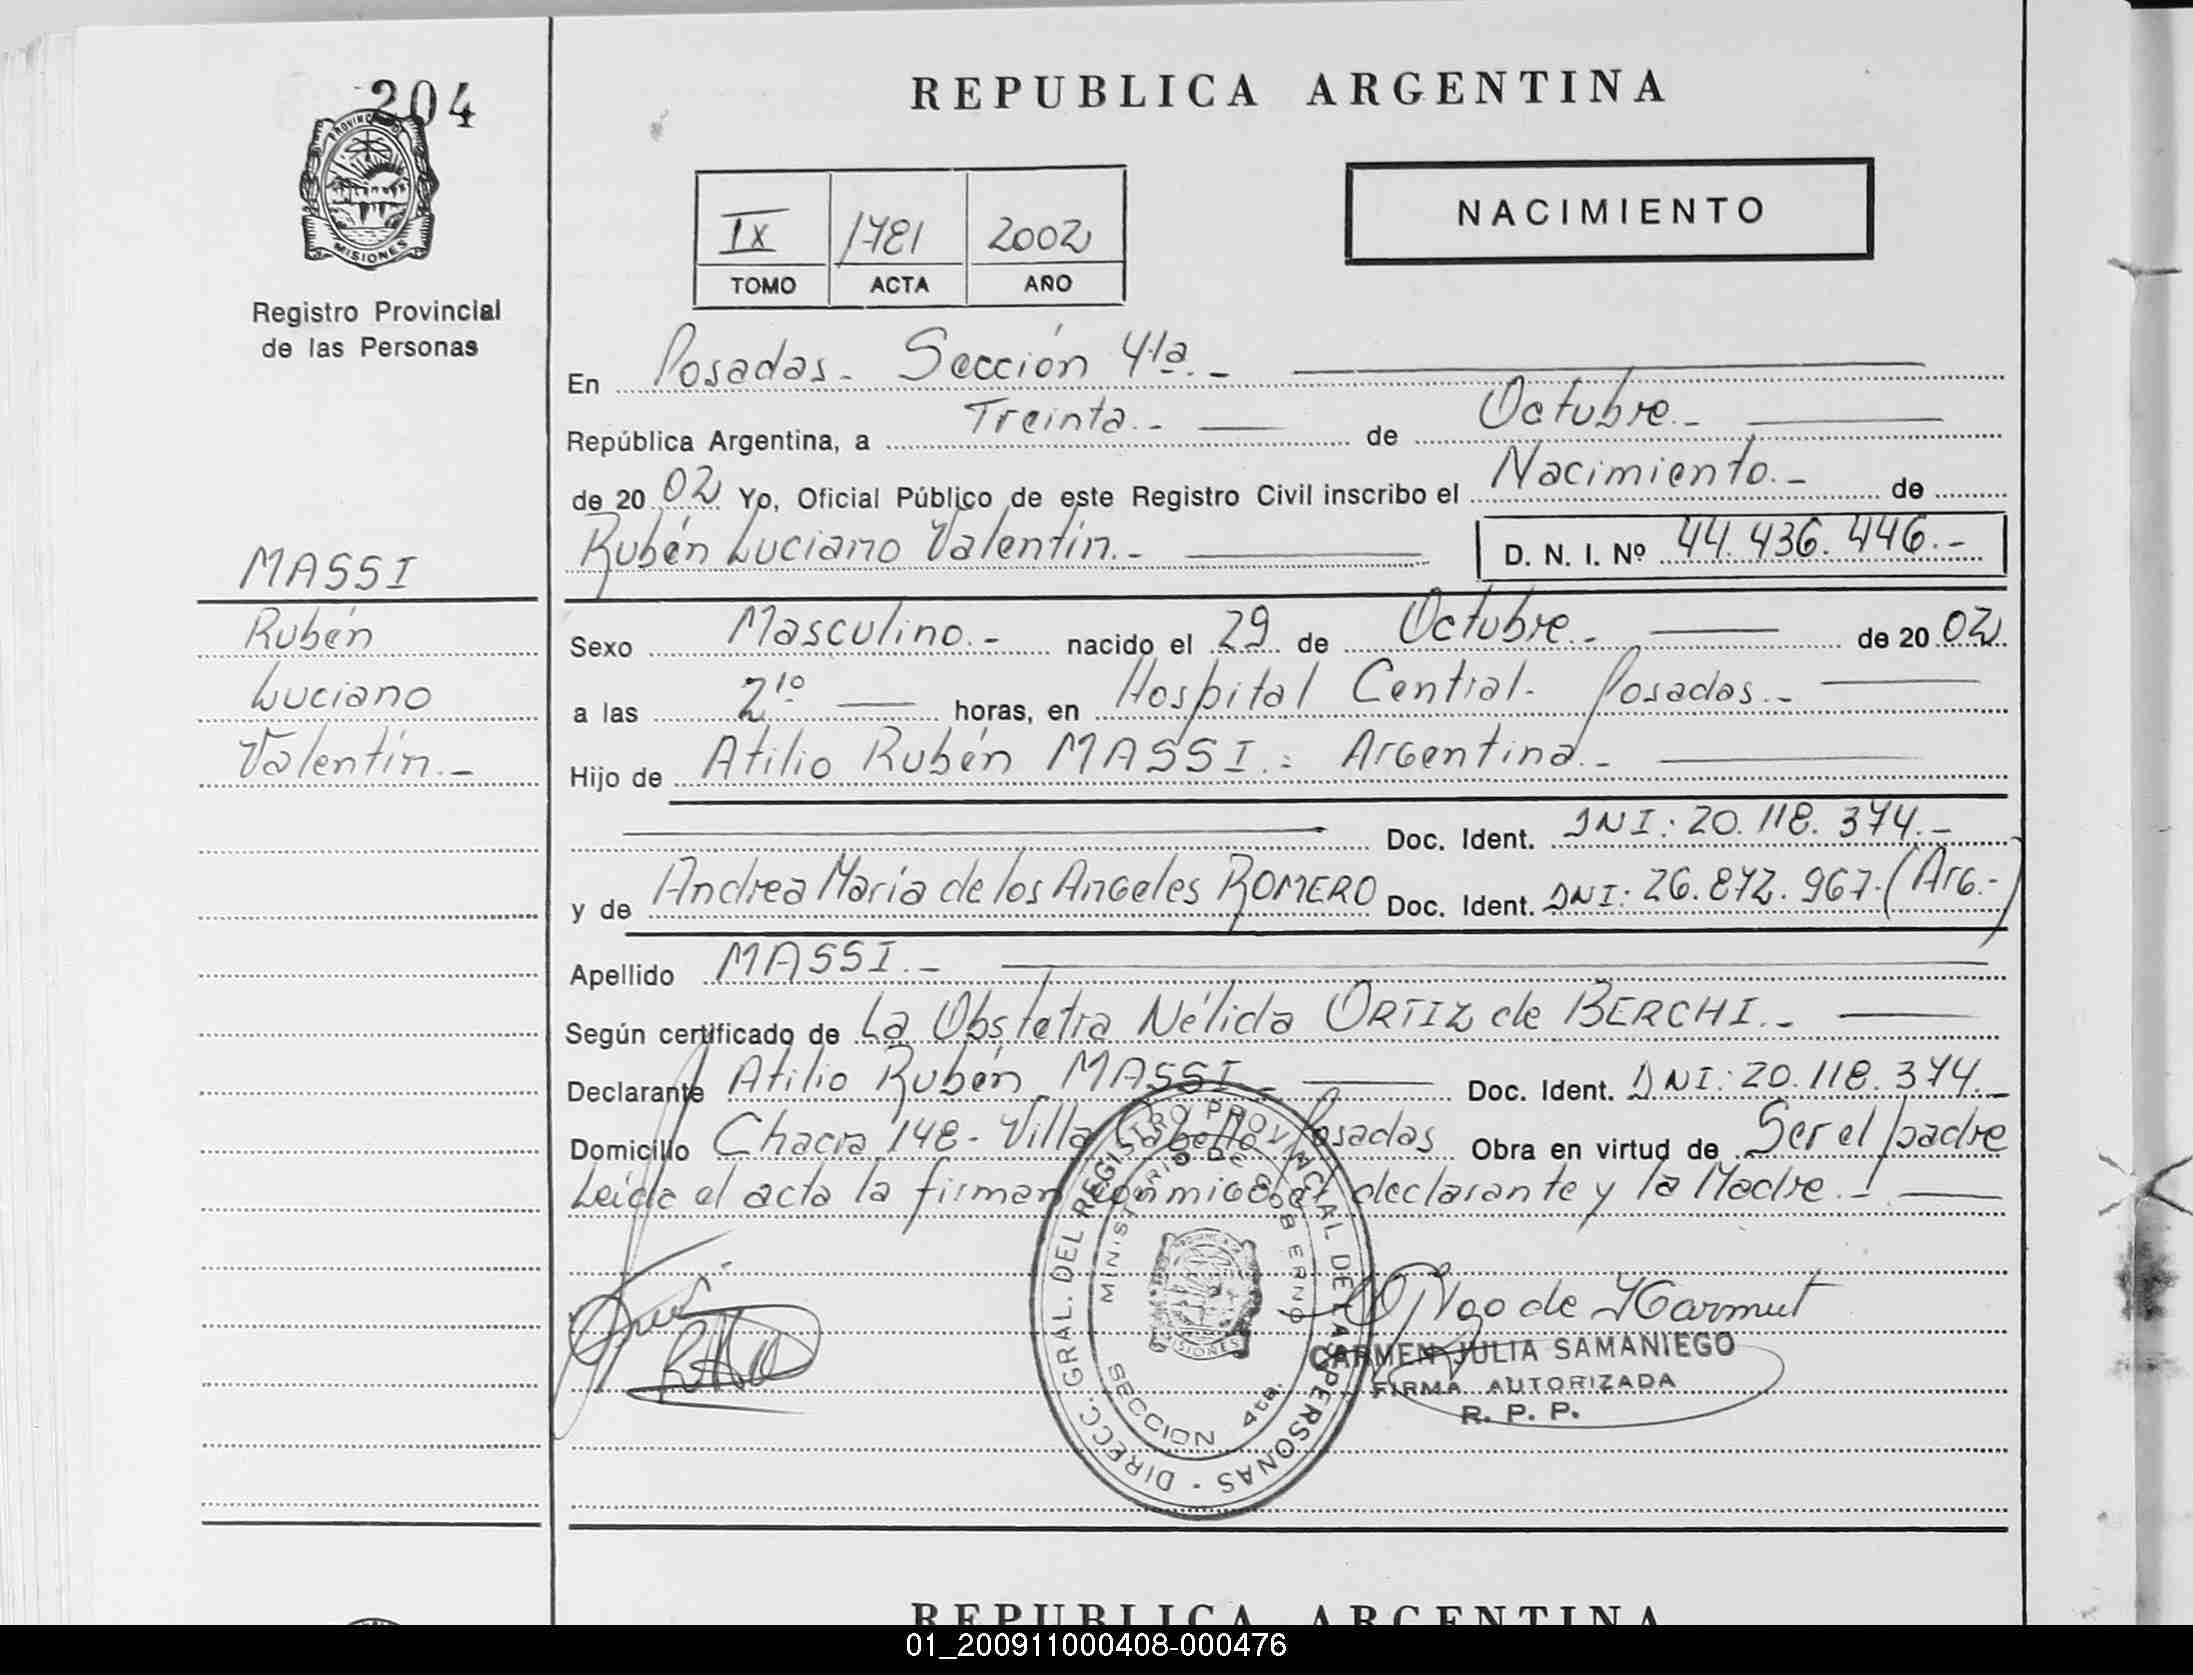 204
PROVINCIA DE
MISIONES
Registro Provincial
de las Personas
MASSI
Rubén
Luciano
Valentín.-
REPUBLICA ARGENTINA
IX 1781 2002
TOMO ACTA AÑO
NACIMIENTO
En Posadas- Sección 4ta.-
República Argentina, a Treinta.- de Octubre.-
de 20 02 Yo, Oficial Público de este Registro Civil inscribo el Nacimiento.- de
Rubén Luciano Valentín.- D. N. I. Nº 44.436.446.-
Sexo Masculino.- nacido el 29 de Octubre.- de 20 02
a las 2¹⁰ horas, en Hospital Central- Posadas.-
Hijo de Atilio Rubén MASSI.: Argentina.-
Doc. Ident. DNI: 20.118.374.-
y de Andrea María de los Angeles ROMERO Doc. Ident. DNI: 26.872.967.(Arg.-)
Apellido MASSI.-
Según certificado de La Obstetra Nélida ORTIZ de BERCHI.-
Declarante Atilio Rubén MASSI.- Doc. Ident. DNI: 20.118.374.-
Domicilio Chacra 148- Villa Cabello Posadas Obra en virtud de Ser el padre
Leída el acta la firman conmigo el declarante y la Madre.-
DIRECC. GRAL. DEL REGISTRO PROVINCIAL DE LAS PERSONAS
MINISTERIO DE GOBIERNO
MISIONES
SECCION 4ta.
CARMEN JULIA SAMANIEGO
FIRMA AUTORIZADA
R. P. P.
REPUBLICA ARGENTINA
01_200911000408-000476